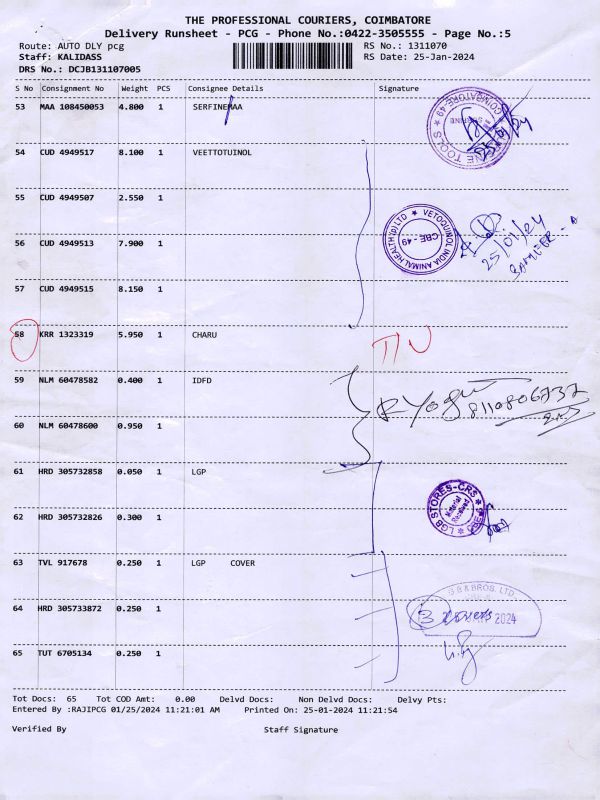 THE PROFESSIONAL COURIERS, COIMBATORE
Delivery Runsheet - PCG - Phone No.:0422-3505555 - Page No.:5
Route: AUTO DLY pcg RS No.: 1311070
Staff: KALIDASS RS Date: 25-Jan-2024
DRS No.: DCJB131107005
S No Consignment No Weight PCS Consignee Details Signature
53 MAA 108450053 4.800 1 SERFINEMAA
54 CUD 4949517 8.100 1 VEETTOTUINOL
55 CUD 4949507 2.550 1
VETOQUINOL INDIA ANIMAL HEALTH (P) LTD
CBE - 49
25/01/24
56 CUD 4949513 7.900 1
57 CUD 4949515 8.150 1
58 KRR 1323319 5.950 1 CHARU
59 NLM 60478582 0.400 1 IDFD
8110806737
60 NLM 60478600 0.950 1
61 HRD 305732858 0.050 1 LGP
LGB STORES-CRS
Material Received
62 HRD 305732826 0.300 1
63 TVL 917678 0.250 1 LGP COVER
64 HRD 305733872 0.250 1
3 covers 2024
65 TUT 6705134 0.250 1
Tot Docs: 65 Tot COD Amt: 0.00 Delvd Docs: Non Delvd Docs: Delvy Pts:
Entered By :RAJIPCG 01/25/2024 11:21:01 AM Printed On: 25-01-2024 11:21:54
Verified By Staff Signature